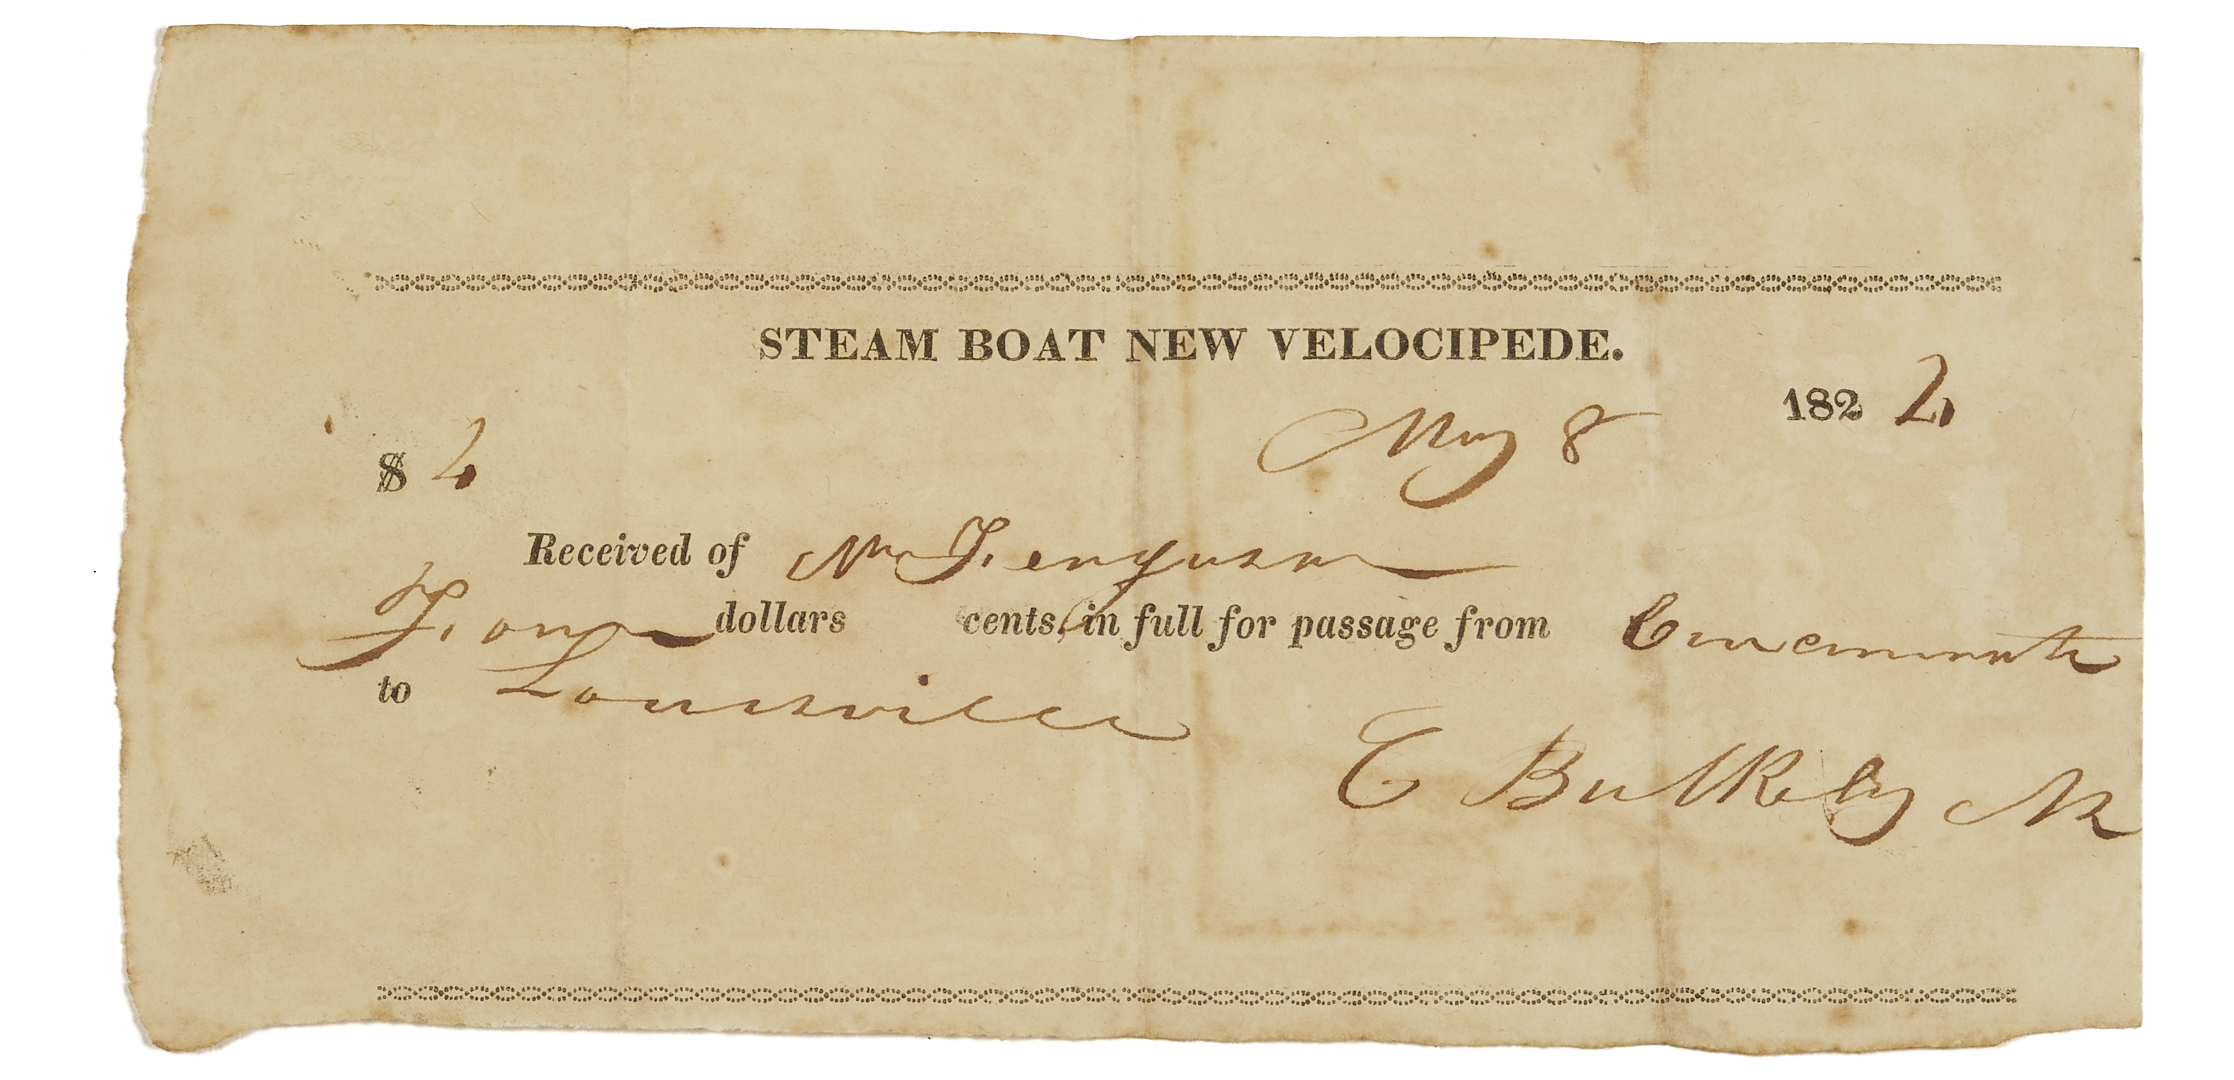 STEAM BOAT NEW VELOCIPEDE.
May 8 1824
$ 4
Received of Mr Ferguson
Four dollars cents, in full for passage from Cincinnati
to Louisville
E Bulkely